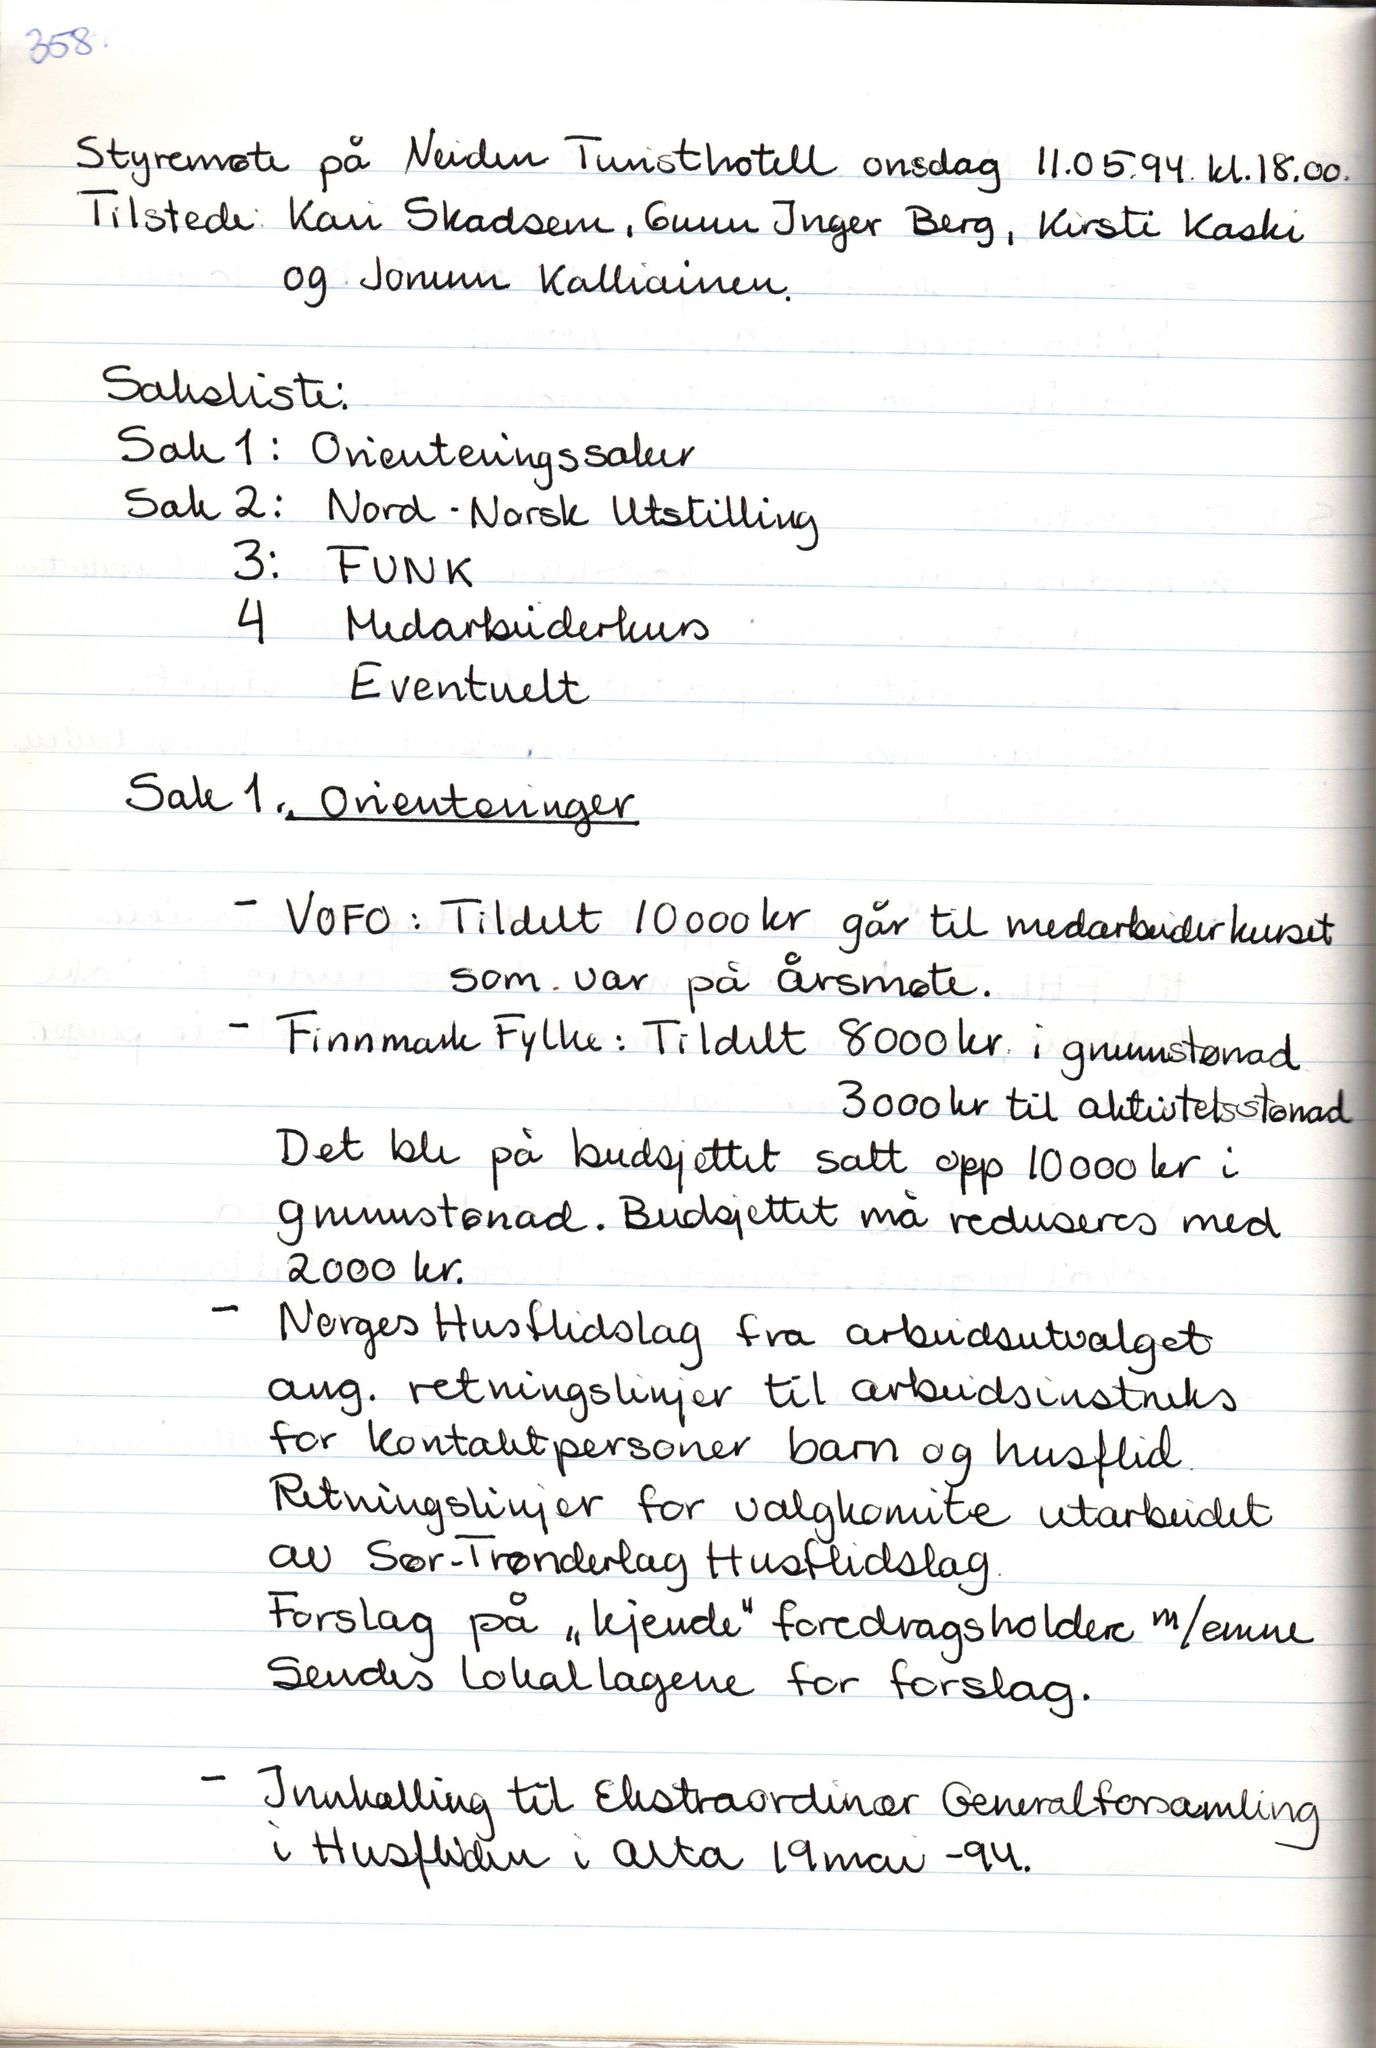 358.
Styremøte på Neiden Turisthotell onsdag 11.05.94. kl.18.00.
Tilstede: Kari Skadsem, Gunn Inger Berg, Kirsti Kaski
og Jorunn Kalliainen.
Saksliste:
Sak 1: Orienteringssaker
Sak 2: Nord-Norsk Utstilling
3: FUNK
4 Medarbeiderkurs
Eventuelt
Sak 1. Orienteringer
- VOFO: Tildelt 10000kr går til medarbeiderkurset
som var på Årsmøte.
- Finnmark Fylke: Tildelt 8000kr. i grunnstønad
3000kr til aktivtetsstønad
Det ble på budsjettet satt opp 10000kr i
grunnstønad. Budsjettet må reduseres med
2000 kr.
- Norges Husflidslag fra arbeidsutvalget
ang. retningslinjer til arbeidsinstruks
for kontaktpersoner barn og husflid.
Retningslinjer for valgkomite utarbeidet
av Sør-Trønderlag Husflidslag.
Forslag på „kjende" foredragsholdere m/emne
Sendes lokallagene for forslag.
- Innkalling til Ekstraordinær Generalforsamling
i Husfliden i Alta 19 mai -94.